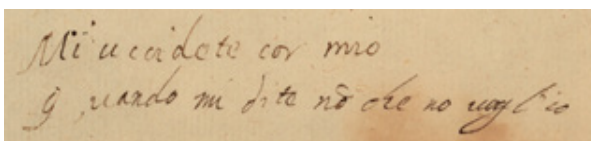 Mi uccidete cor mio
Quando mi dite nõ che no voglio